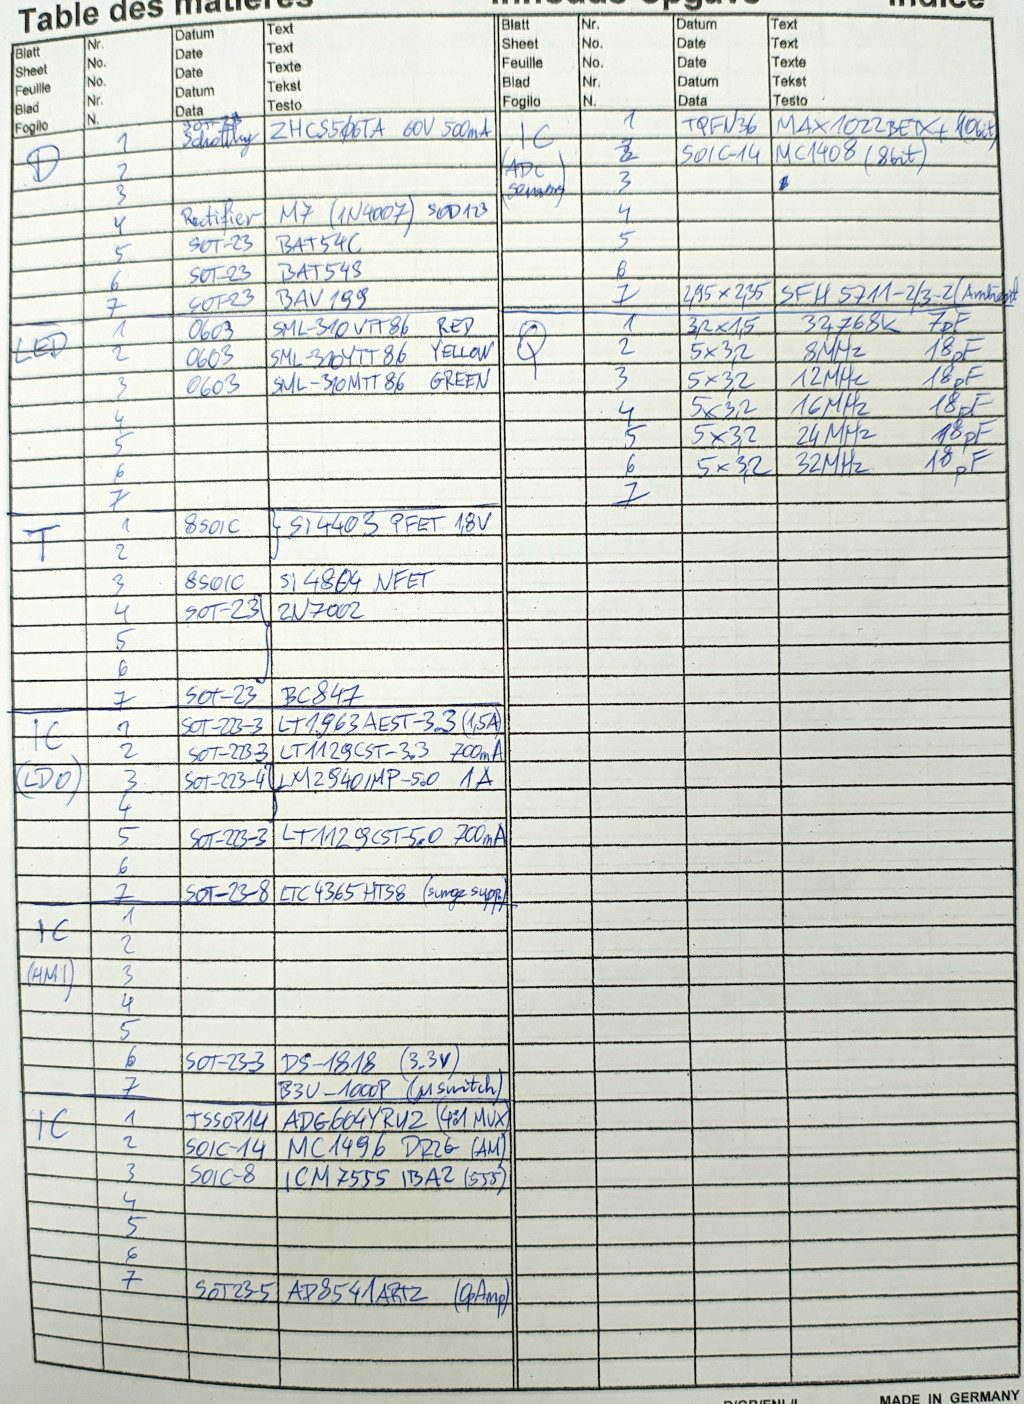 Table des matières Inhouds-opgave Indice
Blatt Nr. Datum Text
Sheet No. Date Text
Feuille No. Date Texte
Blad Nr. Datum Tekst
Foglio N. Data Testo
D 1 SOT-23 Schottky ZHCS506TA 60V 500mA
2
3
4 Rectifier M7 (1N4007) SOD123
5 SOT-23 BAT54C
6 SOT-23 BAT54S
7 SOT23 BAV199
LED 1 0603 SML-310VTT86 RED
2 0603 SML-310YTT86 YELLOW
3 0603 SML-310MTT86 GREEN
4
5
6
7
T 1 8SOIC Si4403 PFET 1,8V
2
3 8SOIC Si4864 NFET
4 SOT-23 2N7002
5
6
7 SOT-23 BC847
IC 1 SOT-223-3 LT1963AEST-3.3 (1,5A)
(LDO) 2 SOT-223-3 LT1129CST-3.3 700mA
3 SOT-223-4 LM2940IMP-5.0 1A
4
5 SOT-223-3 LT1129CST-5.0 700mA
6
7 SOT-23-8 LTC4365HTS8 (surge supp)
IC 1
2
(HMI) 3
4
5
6 SOT-23-3 DS-1818 (3.3V)
7 B3U-1000P (µswitch)
IC 1 TSSOP14 ADG604YRUZ (4:1 MUX)
2 SOIC-14 MC1496 DR2G (AM)
3 SOIC-8 ICM7555 IBAZ (555)
4
5
6
7 SOT23-5 AD8541ARTZ (OpAmp)
Blatt Nr. Datum Text
Sheet No. Date Text
Feuille No. Date Texte
Blad Nr. Datum Tekst
Foglio N. Data Testo
IC 1 TQFN36 MAX1022BETX+ 10bit
(ADC 2 SOIC-14 MC1408 (8bit)
Sensors) 3
4
5
6
7 2,95×2,35 SFH 5711-2/3-Z (Ambient
Q 1 3,2×1,5 32,768K 7pF
2 5×3,2 8MHz 18pF
3 5×3,2 12MHz 18pF
4 5×3,2 16MHz 18pF
5 5×3,2 24MHz 18pF
6 5×3,2 32MHz 18pF
7
MADE IN GERMANY